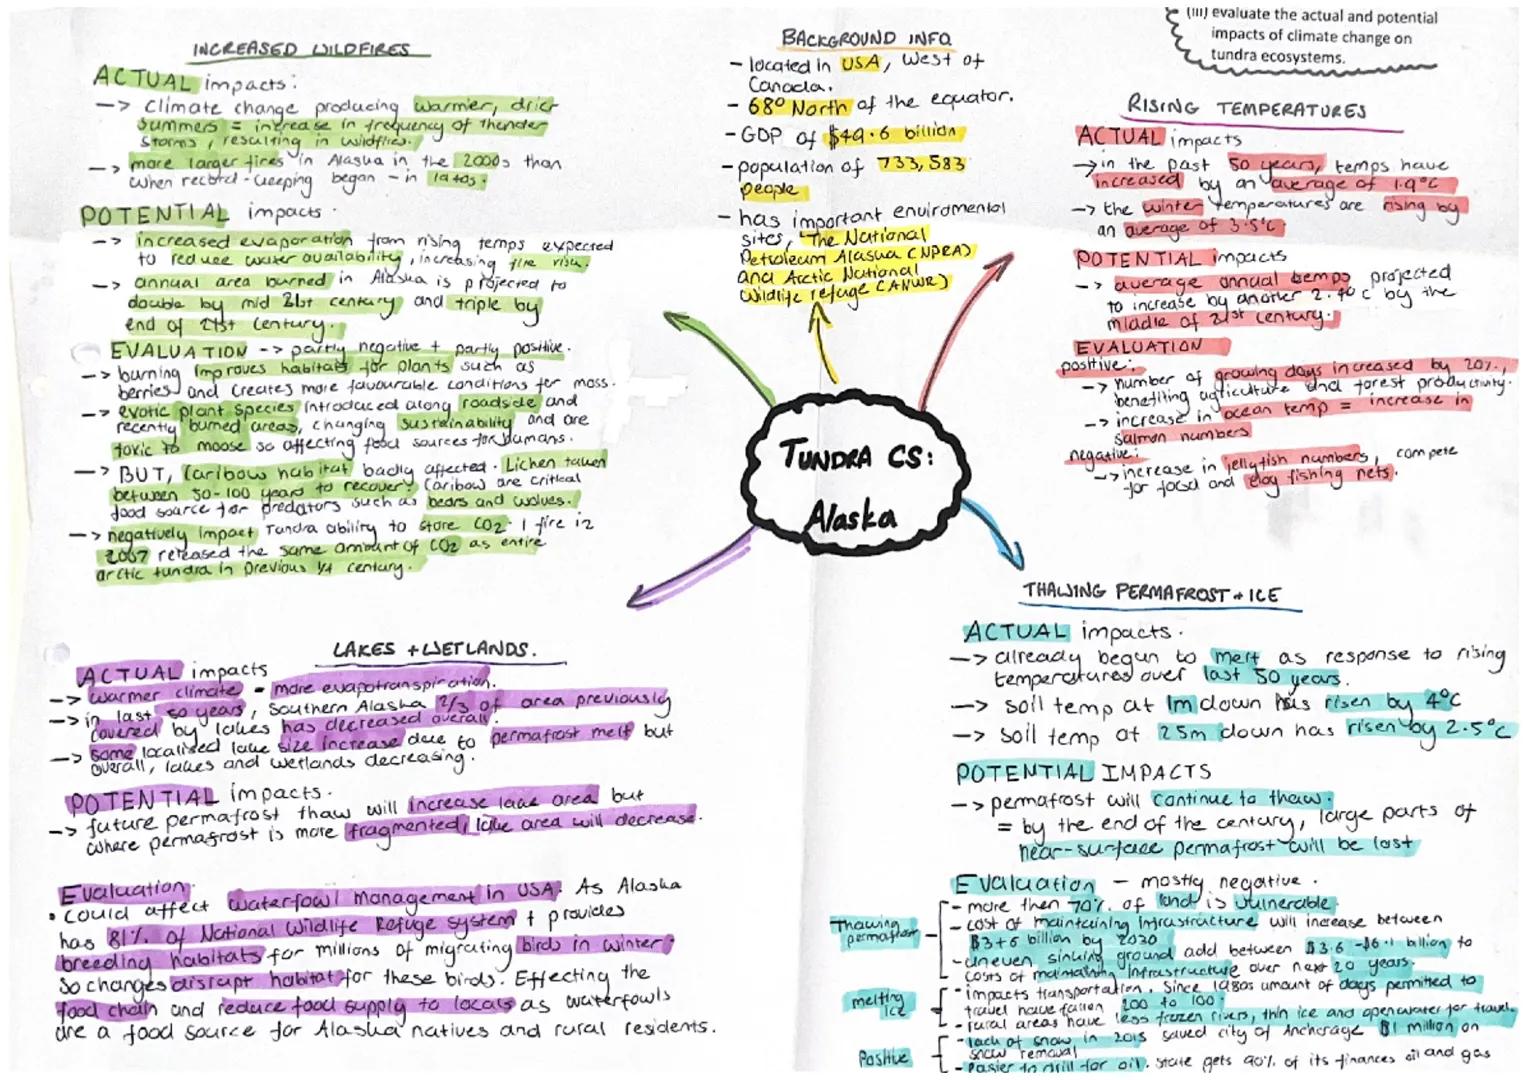 (iii) evaluate the actual and potential
impacts of climate change on
tundra ecosystems.
INCREASED WILDFIRES
ACTUAL impacts:
-> Climate change producing warmer, drier
summers = increase in frequency of thunder
storms, resulting in wildfires.
-> more larger fires in Alaska in the 2000s than
when record-keeping began - in 1940s.
POTENTIAL impacts.
-> increased evaporation from rising temps expected
to reduce water availability, increasing fire risk.
-> annual area burned in Alaska is projected to
double by mid 21st century and triple by
end of 21st century.
EVALUATION -> partly negative + partly positive.
-> burning improves habitats for plants such as
berries and creates more favourable conditions for moss.
-> exotic plant species introduced along roadside and
recently burned areas, changing sustainability and are
toxic to moose so affecting food sources for humans.
-> BUT, Caribous habitat badly affected. Lichen taken
between 50-100 years to recover. Caribou are critical
food source for predators such as bears and wolves.
-> negatively impact Tundra ability to store CO2. 1 fire in
2007 released the same amount of CO2 as entire
arctic tundra in previous 1/4 century.
BACKGROUND INFO
- located in USA, West of
Canada.
- 68° North of the equator.
- GDP of $49.6 billion
- population of 733,583
people
- has important enviromental
sites, The National
Petroleum Alaska (NPRA)
and Arctic National
Wildlife refuge (ANWR)
RISING TEMPERATURES
ACTUAL impacts
-> in the past 50 years, temps have
increased by an average of 1.9°C
-> the winter temperatures are rising by
an average of 3.5°C
POTENTIAL impacts
-> average annual temps projected
to increase by another 2.4°C by the
middle of 21st century.
EVALUATION
positive:
-> number of growing days increased by 20%,
benefiting agriculture and forest productivity.
-> increase in ocean temp = increase in
salmon numbers
negative:
-> increase in jellyfish numbers, compete
for food and clog fishing nets.
TUNDRA CS:
Alaska
LAKES + WETLANDS.
ACTUAL impacts
-> warmer climate = more evapotranspiration.
-> in last 50 years, Southern Alaska 2/3 of area previously
covered by lakes has decreased overall.
-> some localised lake size increase due to permafrost melt but
overall, lakes and wetlands decreasing.
POTENTIAL impacts.
-> future permafrost thaw will increase lake area but
where permafrost is more fragmented, lake area will decrease.
Evaluation
• Could affect waterfowl management in USA. As Alaska
has 81% of National Wildlife Refuge System + provides
breeding habitats for millions of migrating birds in winter.
So changes disrupt habitat for these birds. Effecting the
food chain and reduce food supply to locals as waterfowls
are a food source for Alaska natives and rural residents.
THAWING PERMAFROST + ICE
ACTUAL impacts.
-> already begun to melt as response to rising
temperatures over last 50 years.
-> soil temp at 1m down has risen by 4°C
-> soil temp at 25m down has risen by 2.5°C
POTENTIAL IMPACTS
-> permafrost will continue to thaw.
= by the end of the century, large parts of
near-surface permafrost will be lost
Evaluation - mostly negative.
Thawing
permafrost
- more then 70% of land is vulnerable
- cost of maintaining infrastructure will increase between
$3+6 billion by 2030
- uneven sinking ground add between $3.6-$6.1 billion to
costs of maintaining infrastructure over next 20 years.
melting
ice
- impacts transportation. Since 1980s amount of days permitted to
travel have fallen 200 to 100.
- rural areas have less frozen rivers, thin ice and open water for travel.
Positive
- lack of snow in 2015 saved city of Anchorage $1 million on
snow removal
- easier to drill for oil. state gets 90% of its finances oil and gas